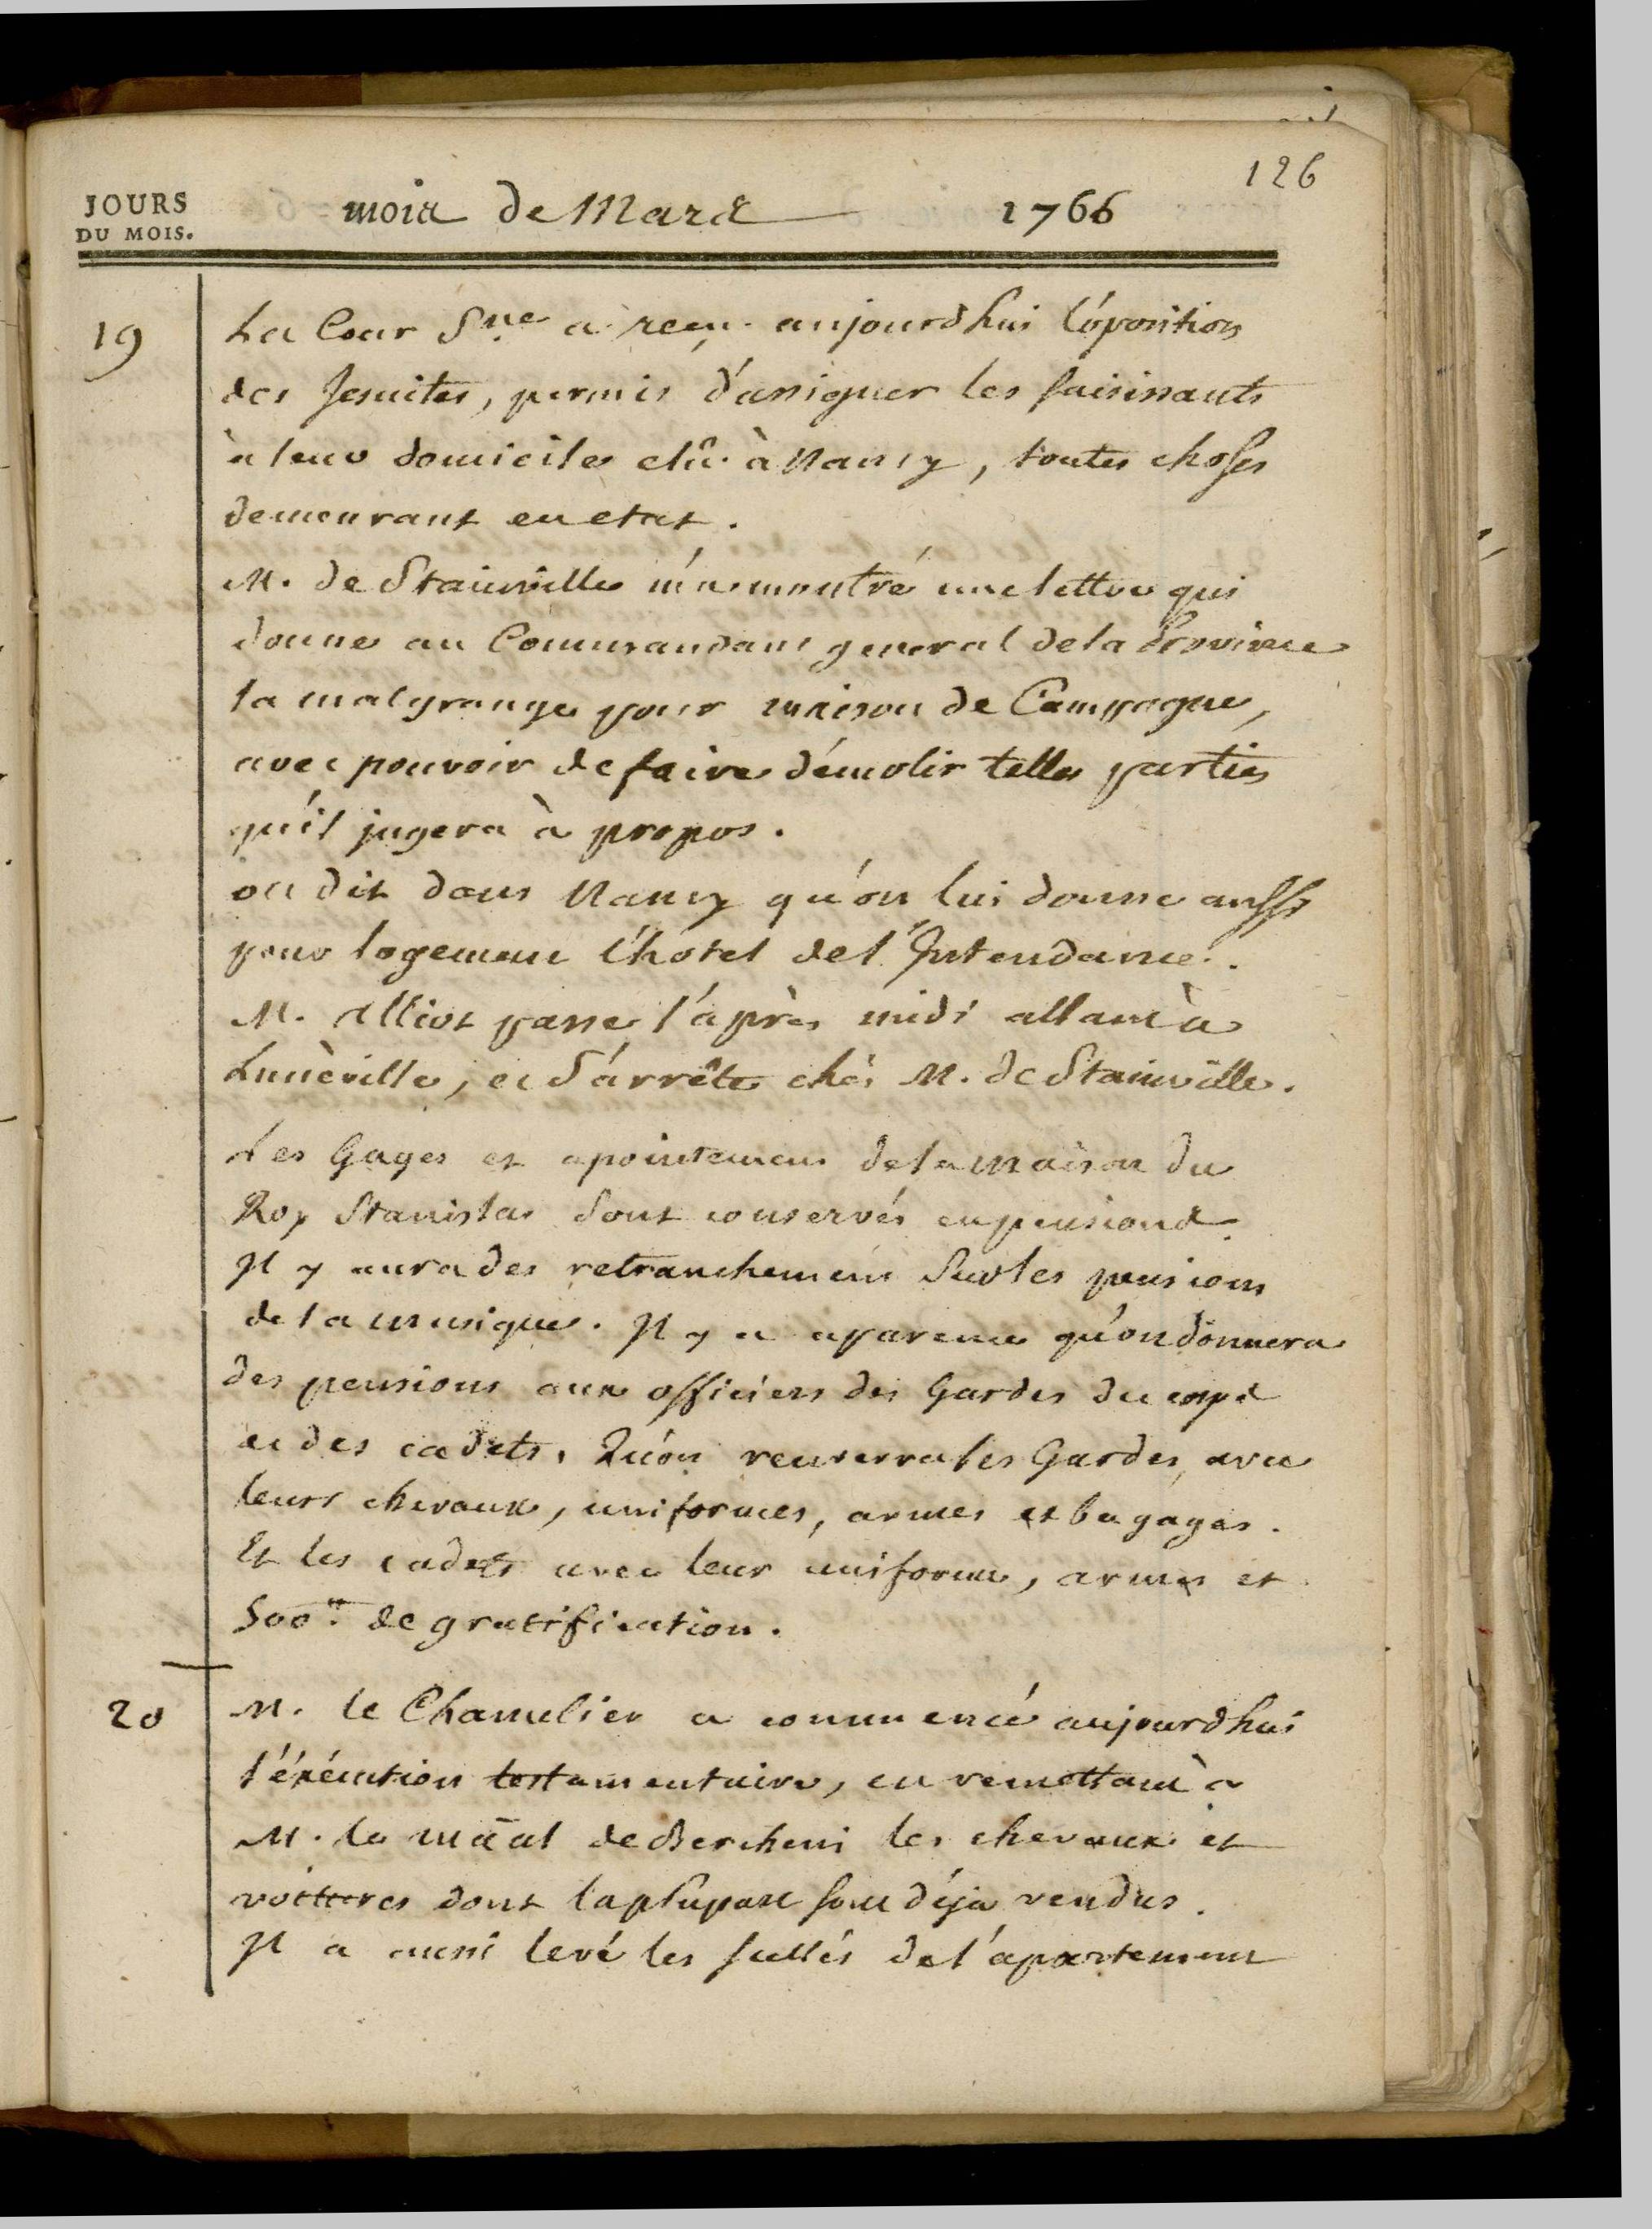 126
JOURS
DU MOIS.
mois de Mars 1766
19
La Cour S.ne a reçu aujourdhui l'óposition
des Jesuites, permis d'assigner les saisissants
à leur domicile élû à Nancy, toutes choses
demeurant en etat.
M. de Stainville m'a montré une lettre qui
donne au Commandant general de la Province
la malgrange pour maison de Campagne,
avec pouvoir de faire démolir telles parties
qu'il jugera à propos.
on dit dans Nancy qu'on lui donne aussi
pour logement l'hotel de l'Intendance.
M. Alliot passe l'après midi allant à
Lunéville, et s'arrête chés M. de Stainville.
Les Gages et apointemens de la maison du
Roy Stanislas sont conservés en pensions.
Il y aura des retranchemens sur les pensions
de la musique. Il y a aparence qu'on donnera
des pensions aux officiers des Gardes du corps
et des cadets, Qu'on renverra les Gardes, avec
leurs chevaux, uniformes, armes et bagages.
Et les cadets avec leur uniforme, armes et
500.tt de gratification.
20
M. le Chancelier a commencé aujourdhui
l'éxécution testamentaire, en remettant à
M. le māal de Bercheni les chevaux et
voitures dont la plupart sont déja vendus.
Il a aussi levé les scellés de l'apartement